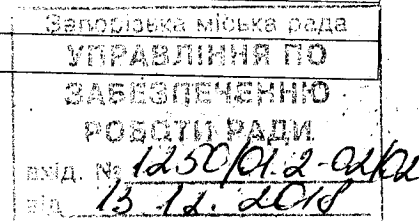 Запорізька міська рада
УПРАВЛІННЯ ПО
ЗАБЕЗПЕЧЕННЮ
РОБОТИ РАДИ
вхід. № 1250/01.2-02/02
від 13.12.2018